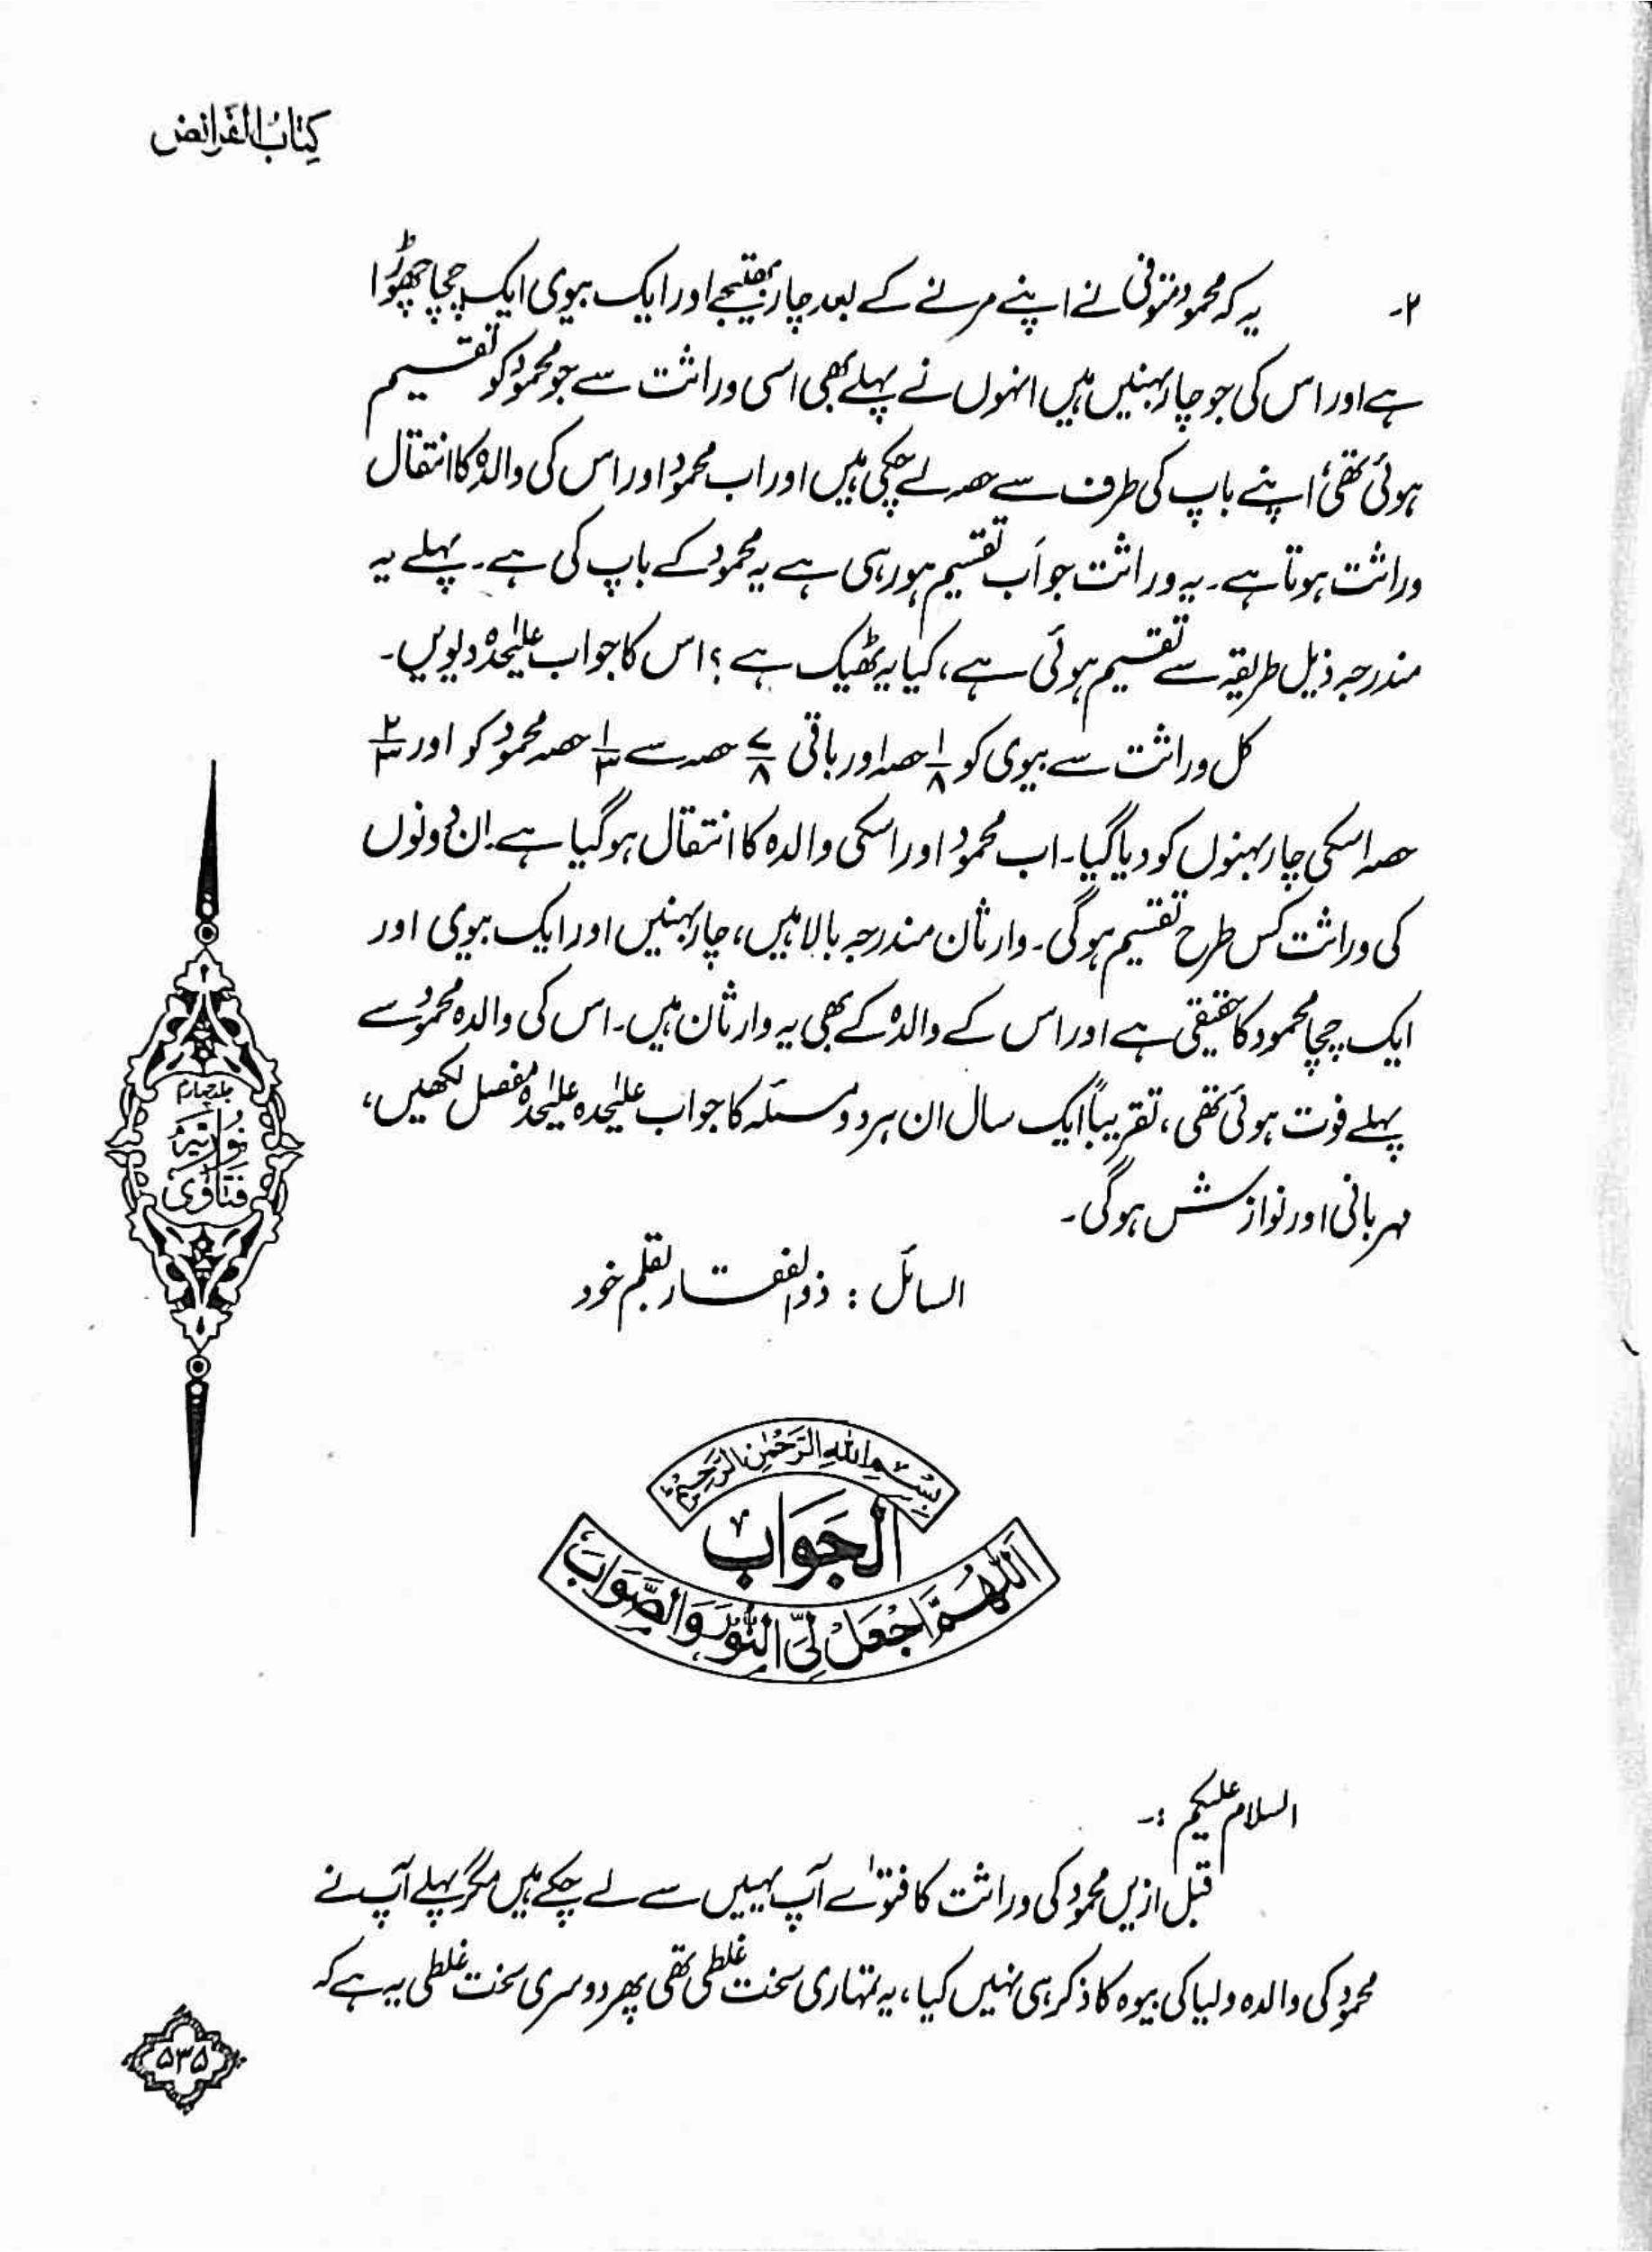 کتابُ الفَرائض
۲۔ یہ کہ محمود متوفی نے اپنے مرنے کے بعد چار بھتیجے اور ایک بیوی ایک چچا چھوڑا
ہے اور اس کی جو چار بہنیں ہیں انہوں نے پہلے بھی اسی وراثت سے جو محمود کو تقسیم
ہوئی تھی، اپنے باپ کی طرف سے حصہ لے چکی ہیں اور اب محمود اور اس کی والدہ کا انتقال
وراثت ہوتا ہے۔ یہ وراثت جو اَب تقسیم ہو رہی ہے یہ محمود کے باپ کی ہے۔ پہلے یہ
مندرجہ ذیل طریقہ سے تقسیم ہوئی ہے، کیا یہ ٹھیک ہے؟ اس کا جواب علیٰحدہ دیویں۔
کل وراثت سے بیوی کو ۱/۸ حصہ اور باقی ۷/۸ حصہ سے ۱/۳ حصہ محمود کو اور ۲/۳
حصہ اسکی چار بہنوں کو دیا گیا۔ اب محمود اور اسکی والدہ کا انتقال ہو گیا ہے۔ ان دونوں
کی وراثت کس طرح تقسیم ہو گی۔ وارثان مندرجہ بالا ہیں، چار بہنیں اور ایک بیوی اور
ایک چچا محمود کا حقیقی ہے اور اس کے والدہ کے بھی یہ وارثان ہیں۔ اس کی والدہ محمود سے
پہلے فوت ہوئی تھی، تقریباً ایک سال ان ہر دو مسئلہ کا جواب علیٰحدہ علیٰحدہ مفصل لکھیں،
مہربانی اور نوازش ہو گی۔
السائل : ذوالفقار بقلم خود
جلد چہارم
نُورِیَّہ
فتَاوٰی
بِسْمِ اللّٰہِ الرَّحْمٰنِ الرَّحِیْمِ
اَلجَوَابُ
اَللّٰہُمَّ اجْعَلْ لِیَ النُّوْرَ وَالصَّوَابَ
السلام علیکم :۔
قبل ازیں محمود کی وراثت کا فتوٰے آپ یہیں سے لے چکے ہیں مگر پہلے آپ نے
محمود کی والدہ ولیا کی بیوہ کا ذکر ہی نہیں کیا، یہ تمہاری سخت غلطی تھی پھر دوسری سخت غلطی یہ ہے کہ
۵۳۵